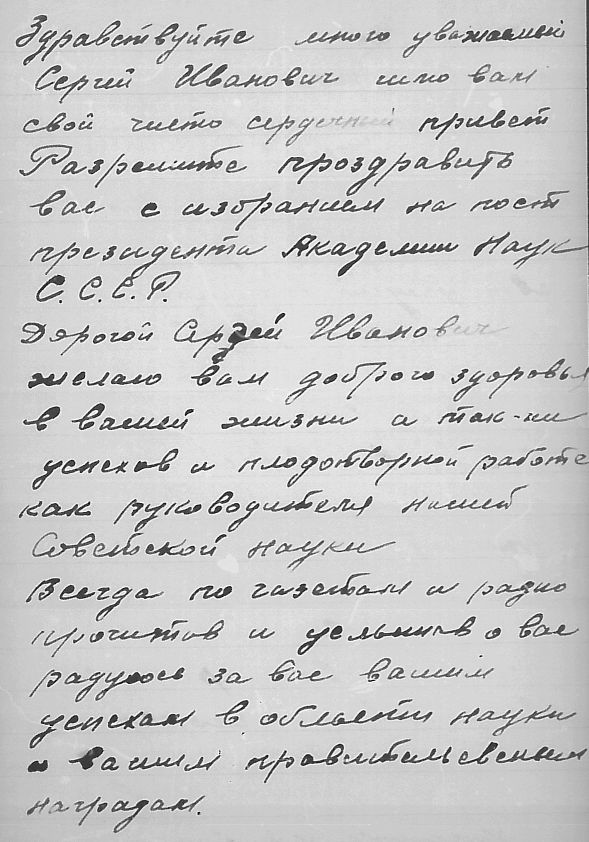 Здравствуйте много уважаемый
Сергей Иванович шлю вам
свой чисто сердечний привет
Разрешите проздравить
вас с избранием на пост
президента Академии Наук
С.С.С.Р.
Дорогой Сергей Иванович
желаю вам доброго здоровья
в вашей жизни а так-жи
успехов и плодотворной работе
как руководителя нашей
Советской науки
Всегда по газетам и радио
прочитов и услышов о вас
радуюсь за вас вашим
успехам в области науки
и вашим правительсвеным
наградам.